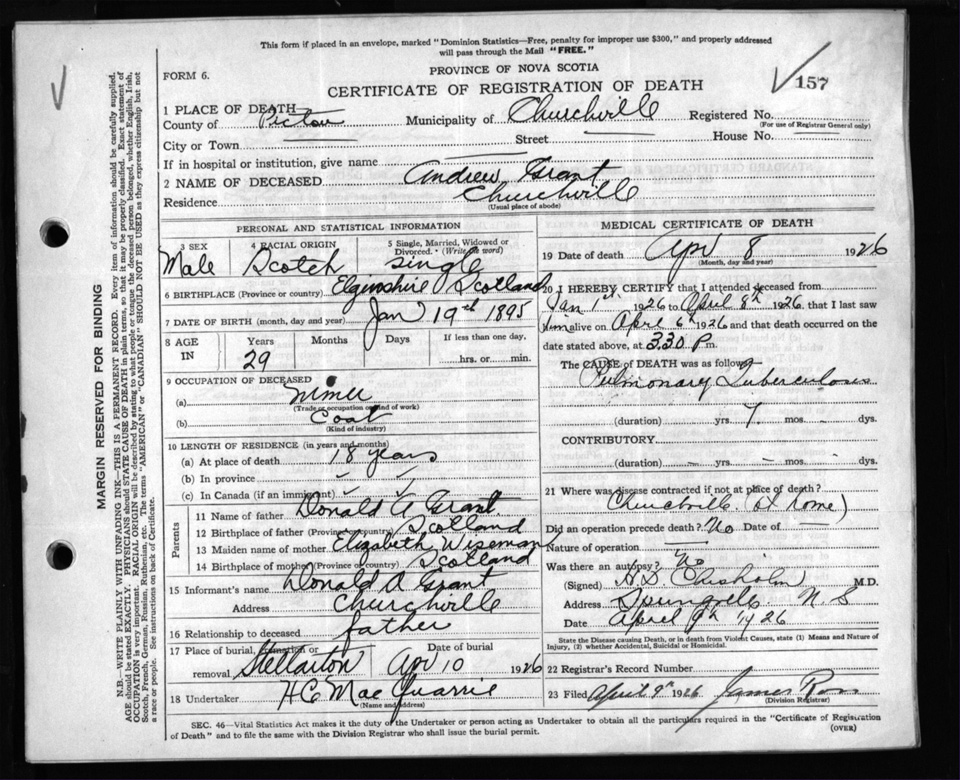 This form if placed in an envelope, marked "Dominion Statistics—Free, penalty for improper use $300," and properly addressed
will pass through the Mail "FREE."
FORM 6.
PROVINCE OF NOVA SCOTIA
CERTIFICATE OF REGISTRATION OF DEATH
157
1 PLACE OF DEATH
County of Pictou Municipality of Churchville Registered No.
(For use of Registrar General only)
City or Town Street House No.
If in hospital or institution, give name
2 NAME OF DECEASED Andrew Grant
Residence Churchville
(Usual place of abode)
PERSONAL AND STATISTICAL INFORMATION
3 SEX 4 RACIAL ORIGIN 5 Single, Married, Widowed or Divorced. (Write the word)
Male Scotch Single
6 BIRTHPLACE (Province or country) Elginshire Scotland
7 DATE OF BIRTH (month, day and year) Jan 19th 1895
8 AGE IN Years Months Days If less than one day,
29 hrs. or min.
9 OCCUPATION OF DECEASED
(a) Miner
(Trade or occupation or kind of work)
(b) Coal
(Kind of industry)
10 LENGTH OF RESIDENCE (in years and months)
(a) At place of death 18 years
(b) In province
(c) In Canada (if an immigrant)
Parents
11 Name of father Donald A Grant
12 Birthplace of father (Province or country) Scotland
13 Maiden name of mother Elizabeth Wiseman
14 Birthplace of mother (Province or country) Scotland
15 Informant's name Donald A Grant
Address Churchville
16 Relationship to deceased father
17 Place of burial, cremation or removal Date of burial
Stellarton Apr 10 1926
18 Undertaker H C MacQuarrie
(Name and address)
MEDICAL CERTIFICATE OF DEATH
19 Date of death Apr 8 1926
(Month, day and year)
20 I HEREBY CERTIFY that I attended deceased from
Jan 1st 1926 to April 8th 1926, that I last saw
him alive on April 6th 1926 and that death occurred on the
date stated above, at 3.30 P m.
The CAUSE OF DEATH was as follows
Pulmonary Tuberculosis
(duration) yrs. 7 mos. dys.
CONTRIBUTORY
(duration) yrs. mos. dys.
21 Where was disease contracted if not at place of death?
Churchville (at home)
Did an operation precede death? No Date of
Nature of operation
Was there an autopsy? No
(Signed) H D Chisholm M.D.
Address Springville N S
Date April 9th 1926
State the Disease causing Death, or in death from Violent Causes, state (1) Means and Nature of
Injury, (2) whether Accidental, Suicidal or Homicidal.
22 Registrar's Record Number
23 Filed April 9th 1926 James Ross
(Division Registrar)
SEC. 46—Vital Statistics Act makes it the duty of the Undertaker or person acting as Undertaker to obtain all the particulars required in the "Certificate of Registration
of Death" and to file the same with the Division Registrar who shall issue the burial permit.
(OVER)
MARGIN RESERVED FOR BINDING
N.B.—WRITE PLAINLY WITH UNFADING INK—THIS IS A PERMANENT RECORD. Every item of information should be carefully supplied.
AGE should be stated EXACTLY. PHYSICIANS should STATE CAUSE OF DEATH in plain terms, so that it may be properly classified. Exact statement of
OCCUPATION is very important. RACIAL ORIGIN will be described by stating to what people or tongue the deceased person belonged, whether English, Irish,
Scotch, French, German, Russian, Ruthenian, etc. The terms "AMERICAN" or "CANADIAN" SHOULD NOT BE USED as they express citizenship but not
a race or people. See instructions on back of Certificate.